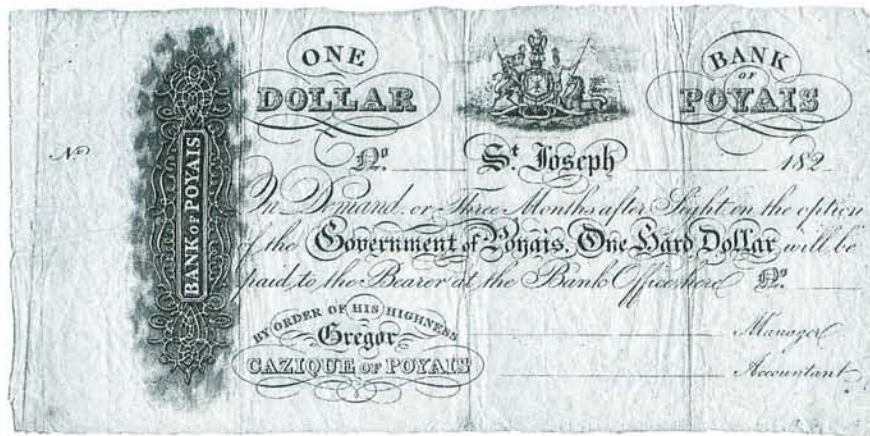 ONE
DOLLAR
BANK
OF
POYAIS
No
BANK OF POYAIS
No. St. Joseph 182
On Demand or Three Months after Sight on the option
of the Government of Poyais, One Hard Dollar will be
paid to the Bearer at the Bank Office here No
BY ORDER OF HIS HIGHNESS
Gregor
CAZIQUE OF POYAIS
Manager
Accountant